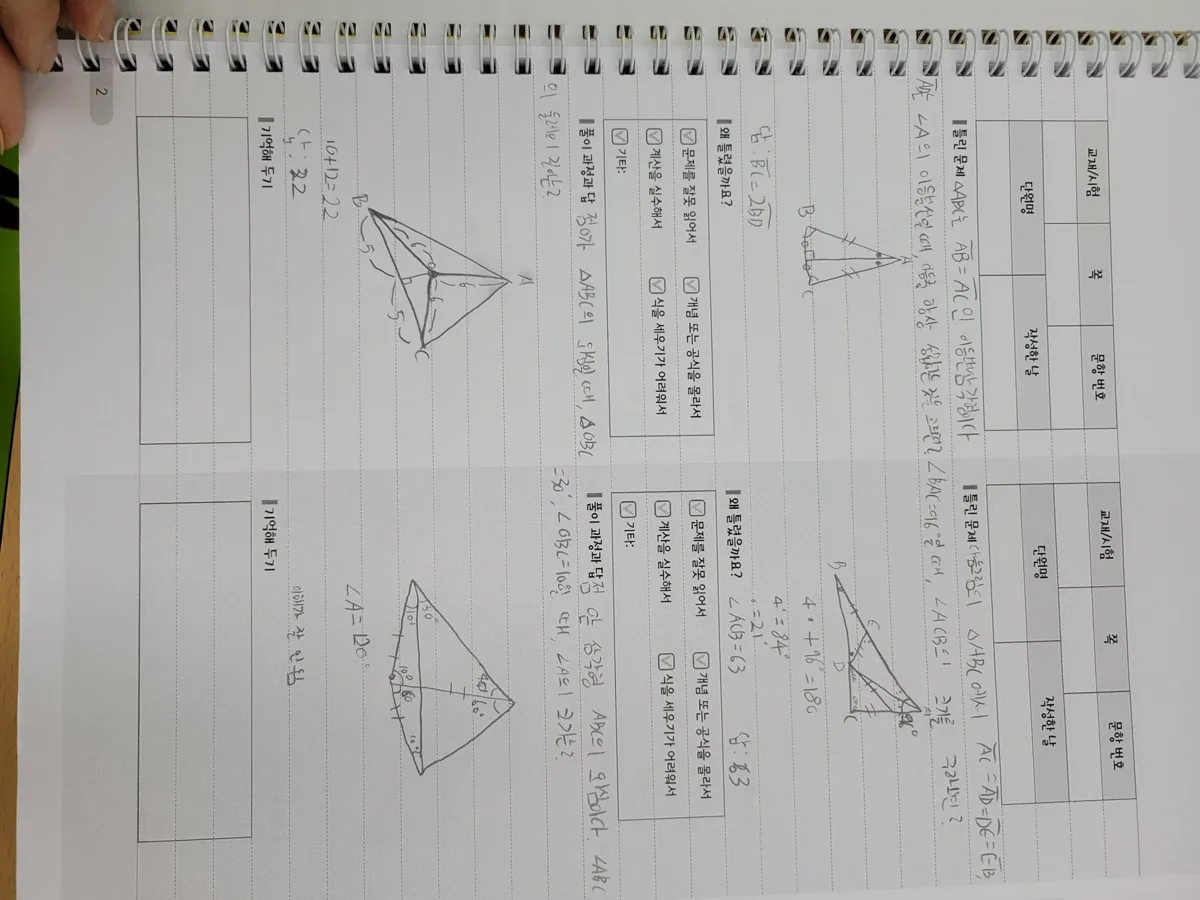 교재/시험
쪽
문항 번호
단원명
작성한 날
틀린 문제 △ABC는 AB=AC인 이등변삼각형이다
AD는 ∠A의 이등분선일 때, 다음 중 항상 성립하는 것은
A
B
C
답: BC=2BD
왜 틀렸을까요?
문제를 잘못 읽어서
개념 또는 공식을 몰라서
계산을 실수해서
식을 세우기가 어려워서
기타:
풀이 과정과 답 점O가 △ABC의 외심일 때, △OBC
의 둘레의 길이는?
A
B
C
6
6
6
5
5
10+12=22
답: 22
기억해 두기
2
교재/시험
쪽
문항 번호
단원명
작성한 날
틀린 문제 다음그림의 △ABC에서 AC=AD=DE=EB,
∠BAC=96일 때, ∠ACB의 크기를 구하면?
B
E
D
A
C
96°
4•+96°=180
4•=84°
•=21°
∠ACB=63
답: 63
왜 틀렸을까요?
문제를 잘못 읽어서
개념 또는 공식을 몰라서
계산을 실수해서
식을 세우기가 어려워서
기타:
풀이 과정과 답 점 O은 삼각형 ABC의 외심이다. ∠ABC
=30°, ∠OBC=10일 때, ∠A의 크기는?
30°
10°
10°
60°
10°
∠A=120°
이해가 잘 안됨
기억해 두기